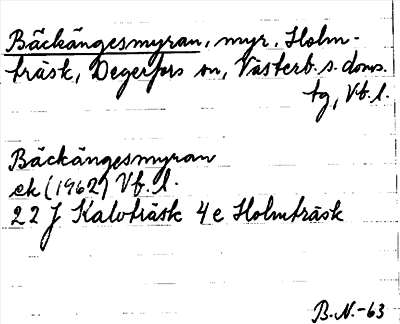 Bäckängesmyran, myr, Holm-
träsk, Degerfors sn, Västerb. s. doms.
tg, Vb. l.
Bäckängesmyran
ek (1962) Vb. l.
22 J Kalvträsk 4e Holmträsk
B.N.-63